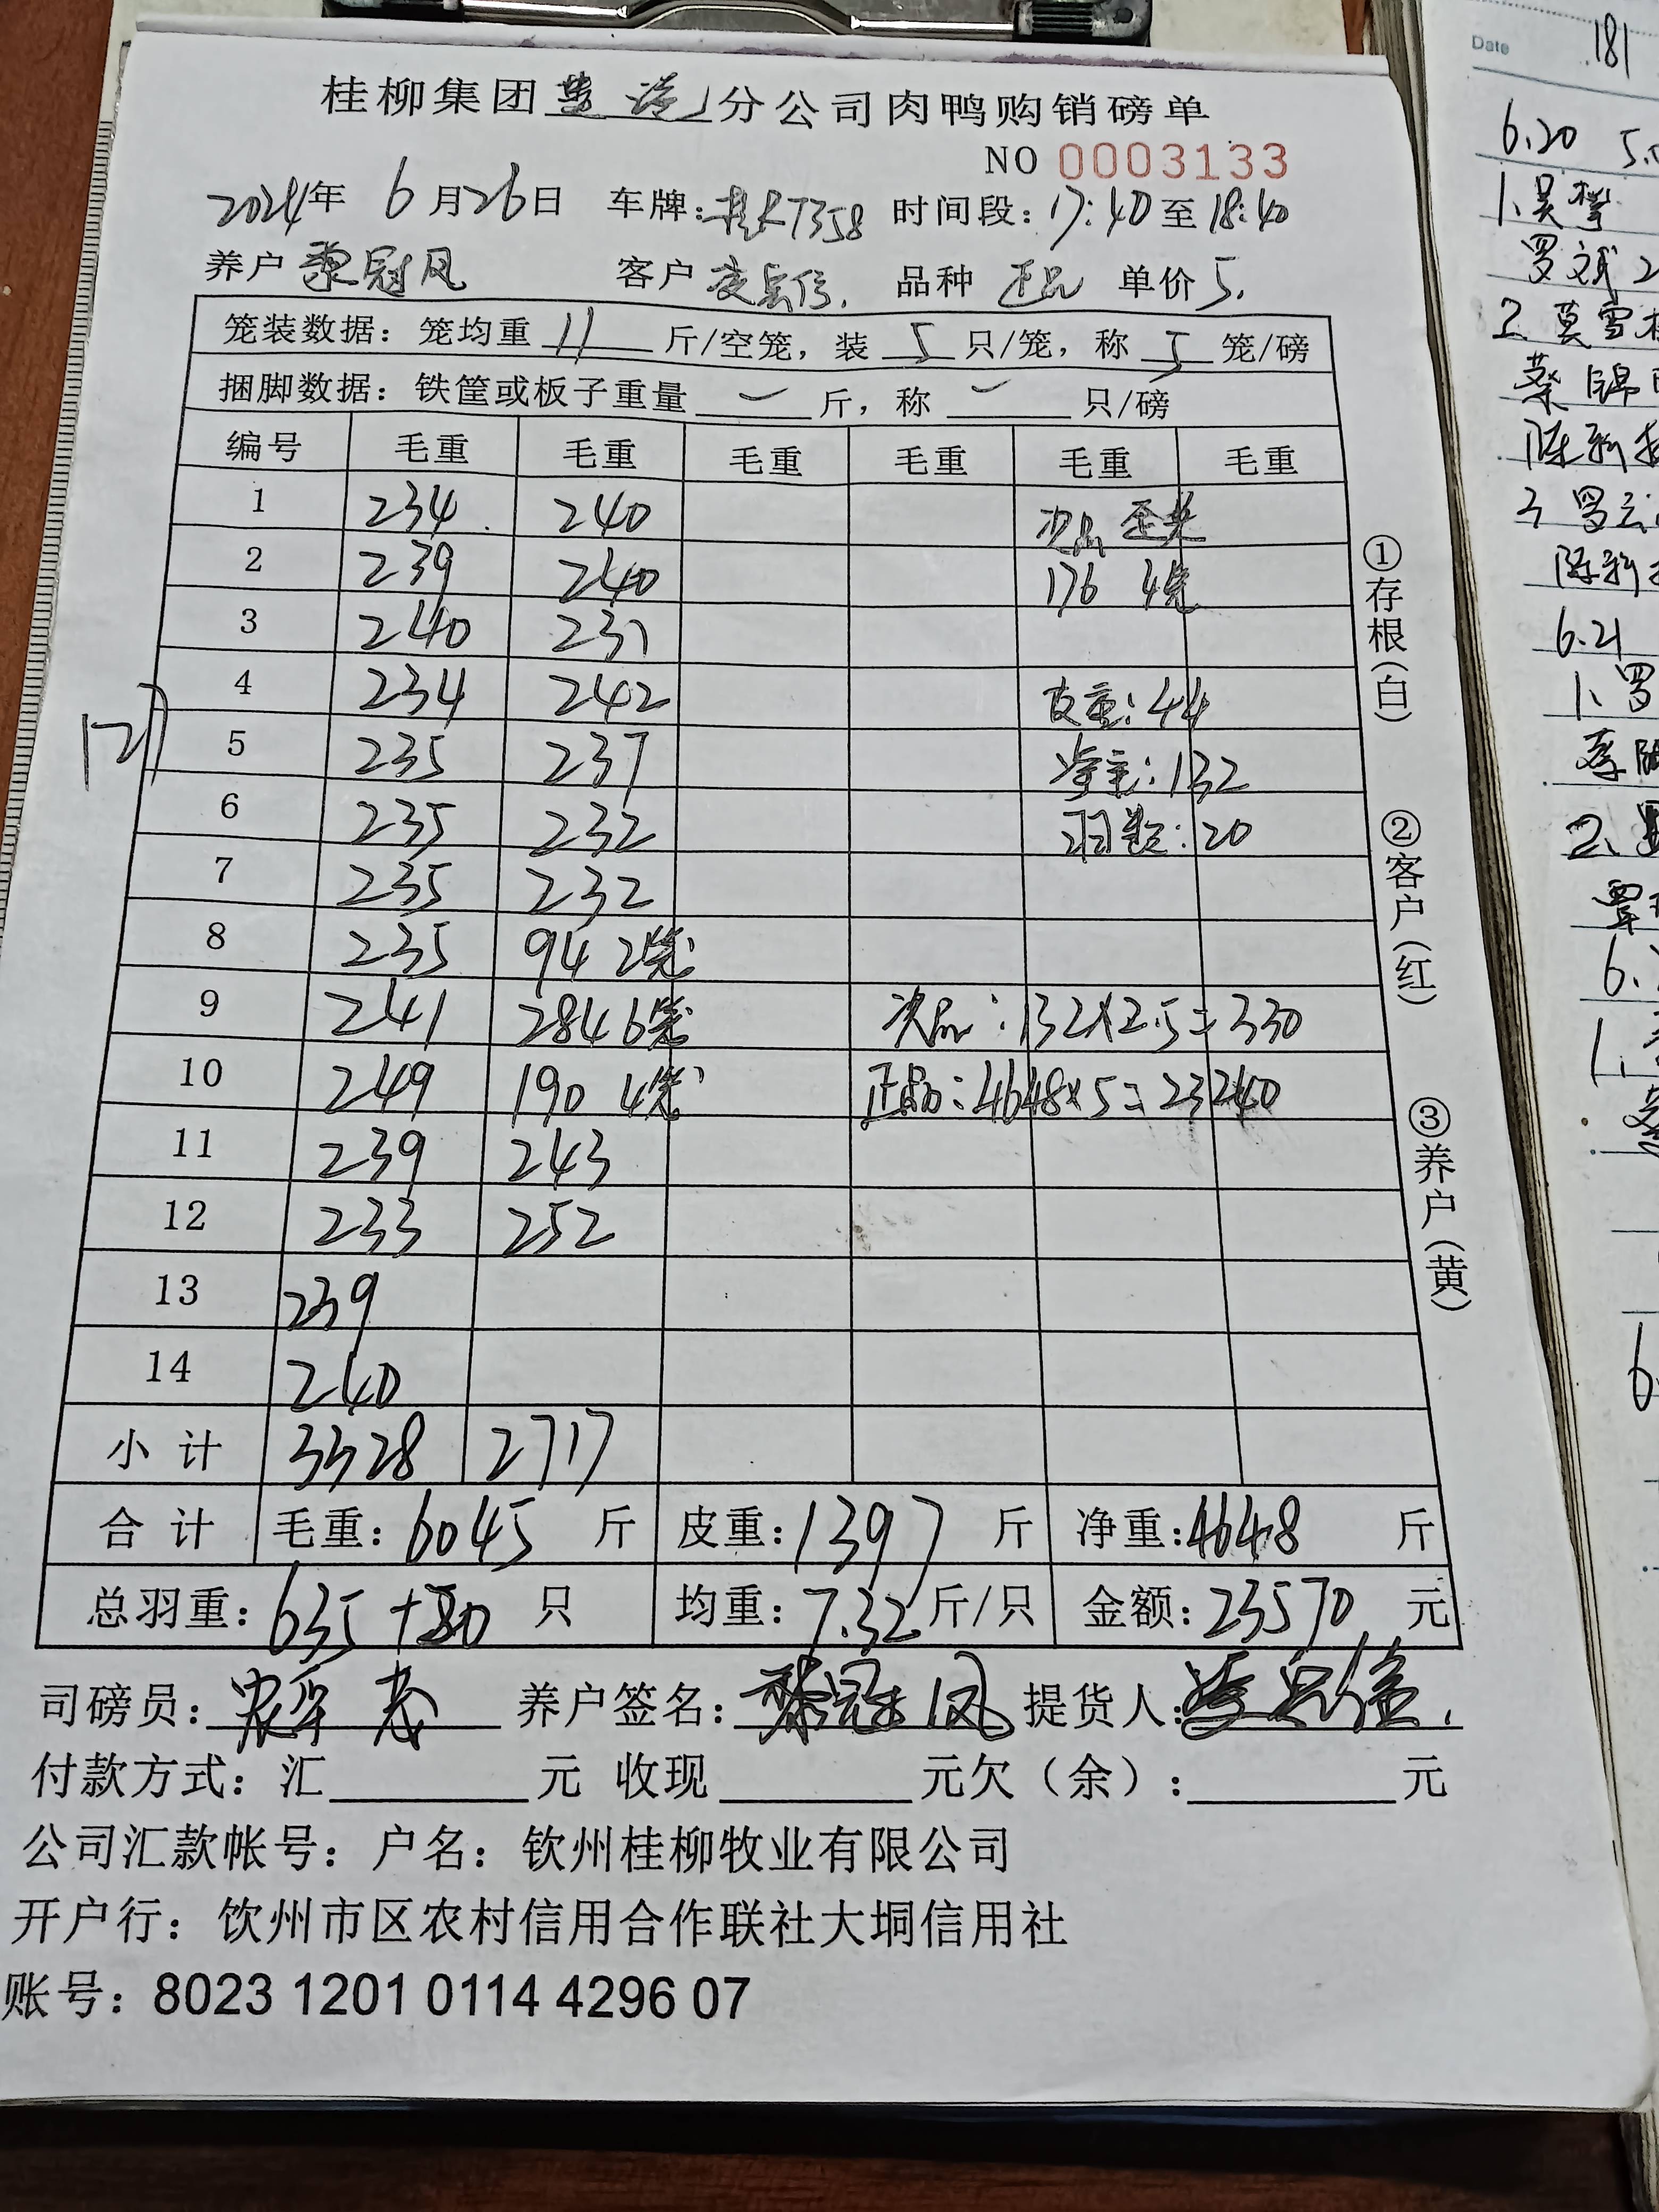 桂柳集团 分公司肉鸭购销磅单
NO 0003133
2024年 6月26日 车牌:桂KT358 时间段:17:40至18:40
养户 黎冠凤 客户 品种 正品 单价5.
笼装数据:笼均重 11 斤/空笼,装 5 只/笼,称 5 笼/磅
捆脚数据:铁筐或板子重量 一 斤,称 一 只/磅
编号 毛重 毛重 毛重 毛重 毛重 毛重
1 234. 240 次品 歪头
2 239 240 176 4笼
3 240 231
4 234 242 皮重:44
5 235 237 净重:132
6 235 232 羽数:20
7 235 232
8 235 94 2笼
9 241 284 6笼 次品:132×2.5=330
10 249 190 4笼 正品:4648×5=23240
11 239 243
12 233 252
13 239
14 240
小计 3328 2717
合计 毛重:6045 斤 皮重:1397 斤 净重:4648 斤
总羽重:635+20 只 均重:7.32斤/只 金额:23570 元
司磅员: 养户签名:黎冠凤 提货人:
付款方式:汇 元 收现 元欠(余): 元
公司汇款帐号:户名:钦州桂柳牧业有限公司
开户行:饮州市区农村信用合作联社大垌信用社
账号:8023 1201 0114 4296 07
127
①存根(白)
②客户(红)
③养户(黄)
Date 181
6.20
1.吴
罗斌
2.莫雪
蔡锦
陈新
3 罗云
陈新
6.21
1.罗
2.
覃
6.
1.